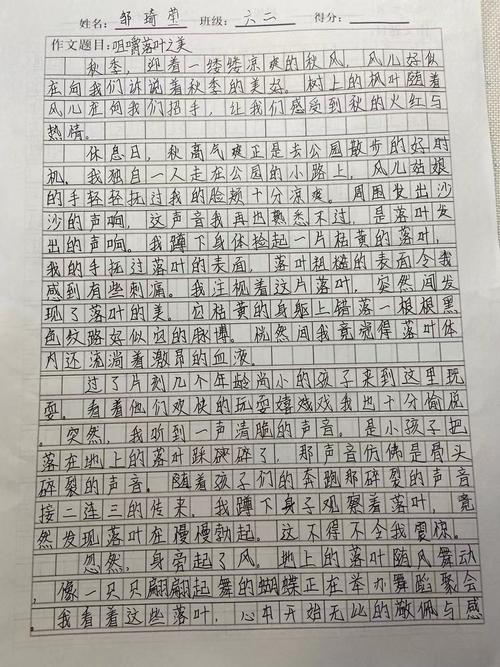 姓名：邹琦莹 班级：六二 得分：
作文题目：咀嚼落叶之美
秋季，迎着一缕缕凉爽的秋风，风儿好似
在向我们诉说着秋季的美好。树上的枫叶随着
风儿在向我们招手，让我们感受到秋的火红与
热情。
休息日，秋高气爽正是去公园散步的好时
机，我独自一人走在公园的小路上，风儿姑娘
的手轻轻抚过我的脸颊十分凉爽。周围发出沙
沙的声响，这声音我再出熟悉不过，是落叶发
出的声响。我蹲下身体捡起一片枯黄的落叶，
我的手抚过落叶的表面，落叶粗糙的表面令我
感到有些刺痛。我注视着这片落叶，突然间发
现了落叶的美。它枯黄的身躯上错落一根根黑
色纹路好似它的脉博。恍然间我竟觉得落叶体
内还流淌着激昂的血液。
过了片刻几个年龄尚小的孩子来到这里玩
耍。看着他们欢快的玩耍嬉戏戏我也十分愉悦
。突然，我听到一声清脆的声音。是小孩子把
落在地上的落叶踩破碎了，那声音仿佛是骨头
碎裂的声音。随着孩子们的奔跑那碎裂的声音
接二连三的传来。我蹲下身子观察着落叶，竟
然发现落叶在慢慢勃起。这不得不令我震惊。
忽然，身旁起了风。地上的落叶随风舞动
，像一只只翩翩起舞的蝴蝶正在举办舞蹈聚会
。我看着这些落叶，心中开始无比的敬佩与感